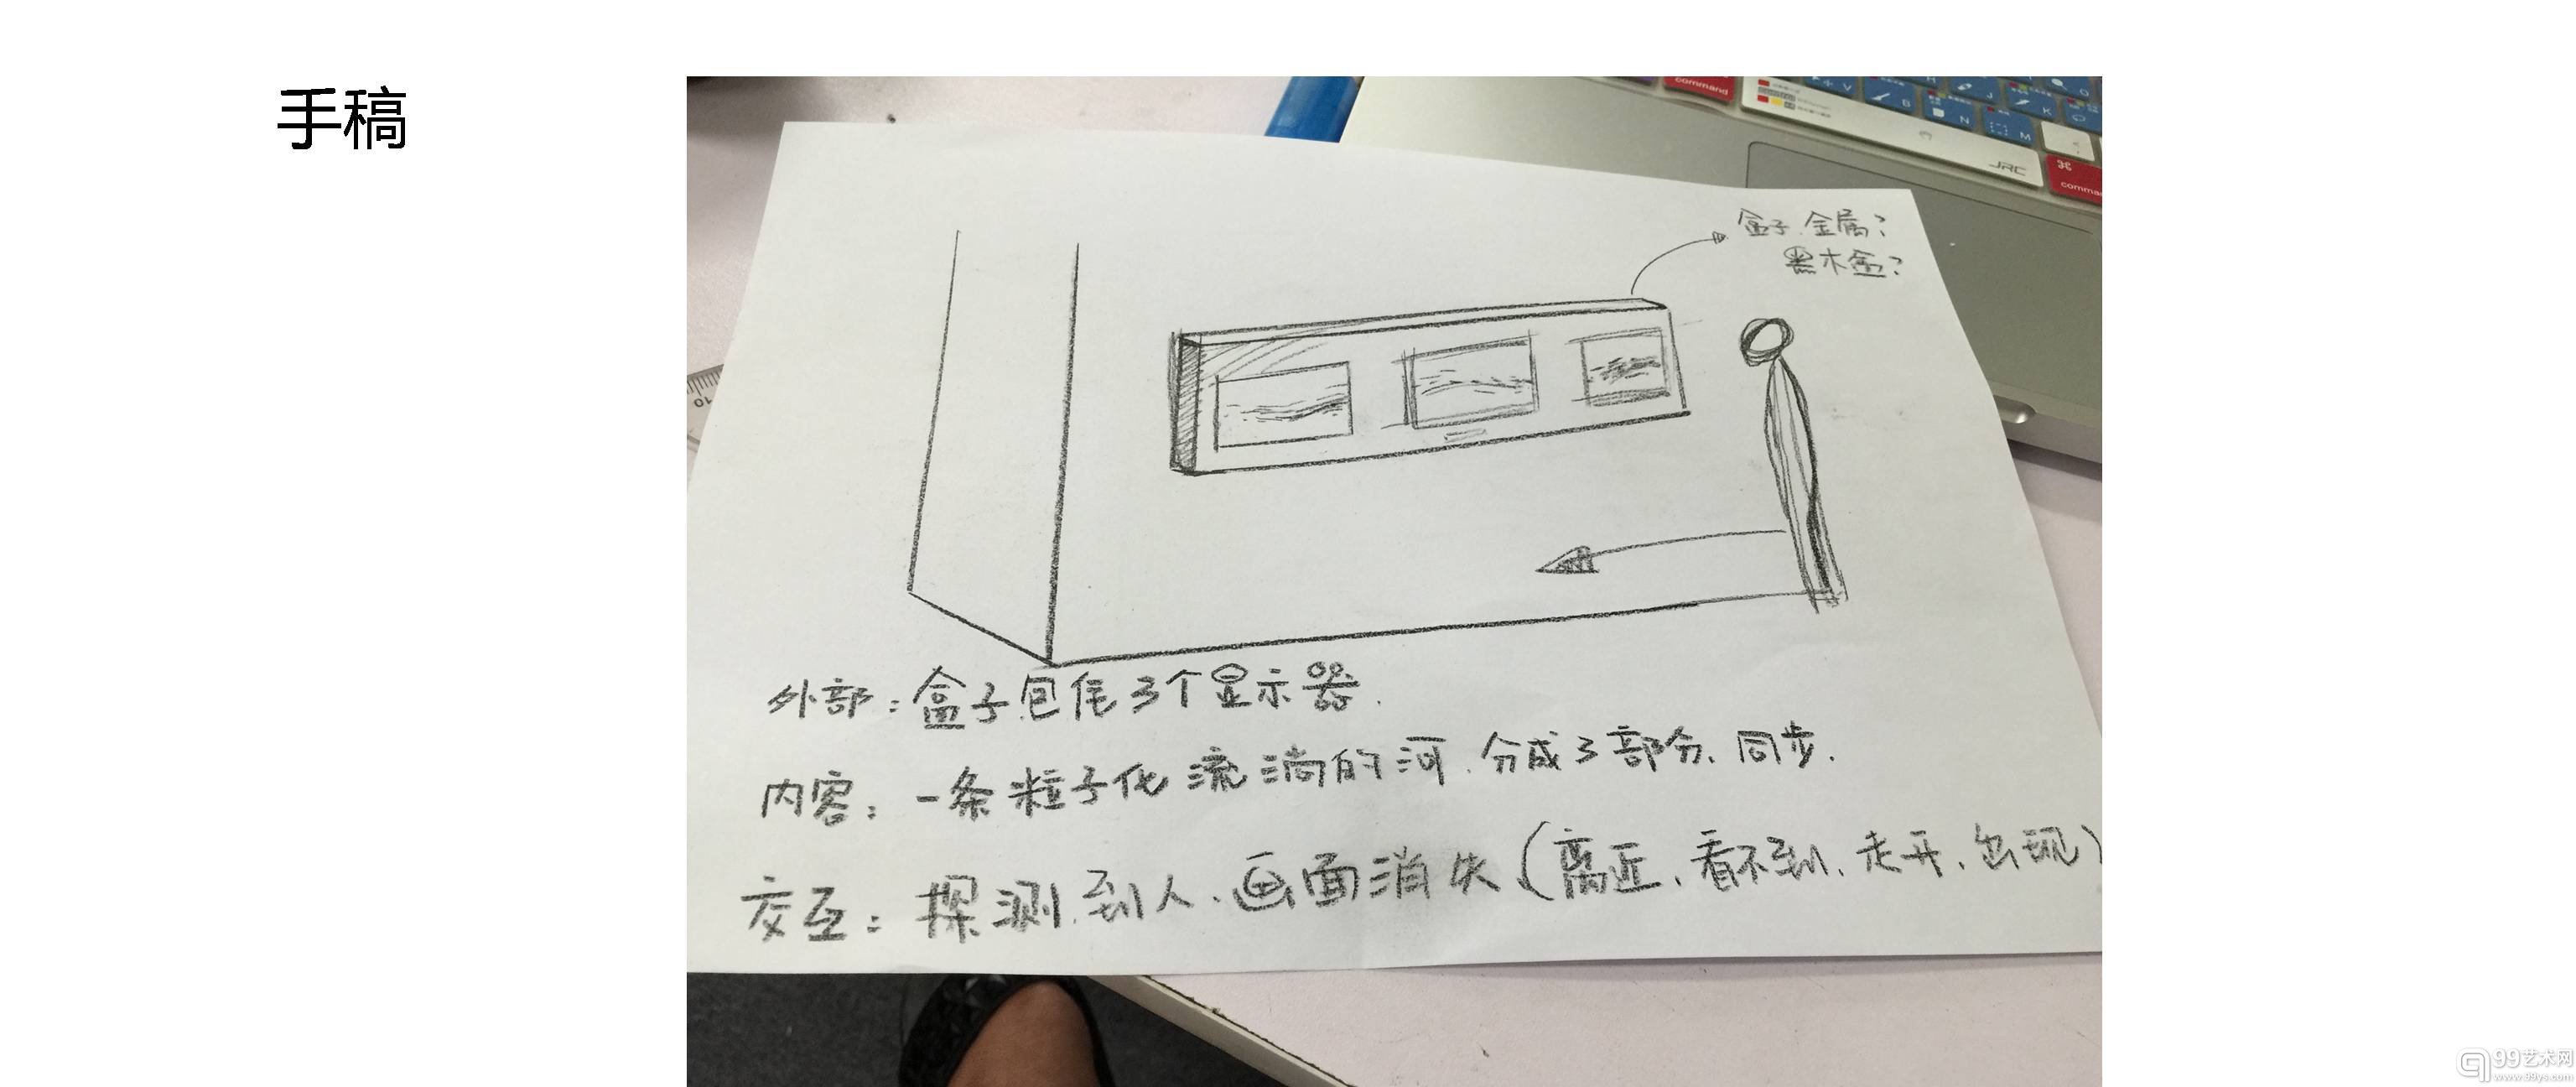 手稿
盒子.金属?
黑木盒?
外部:盒子包住3个显示器.
内容:一条粒子化流淌的河.分成3部分.同步.
交互:探测到人.画面消失(离近.看不到.走开.出现)
command
V
B
N
M
J
K
H
O
JRC
⌘
comma
10
99艺术网
www.99ys.com